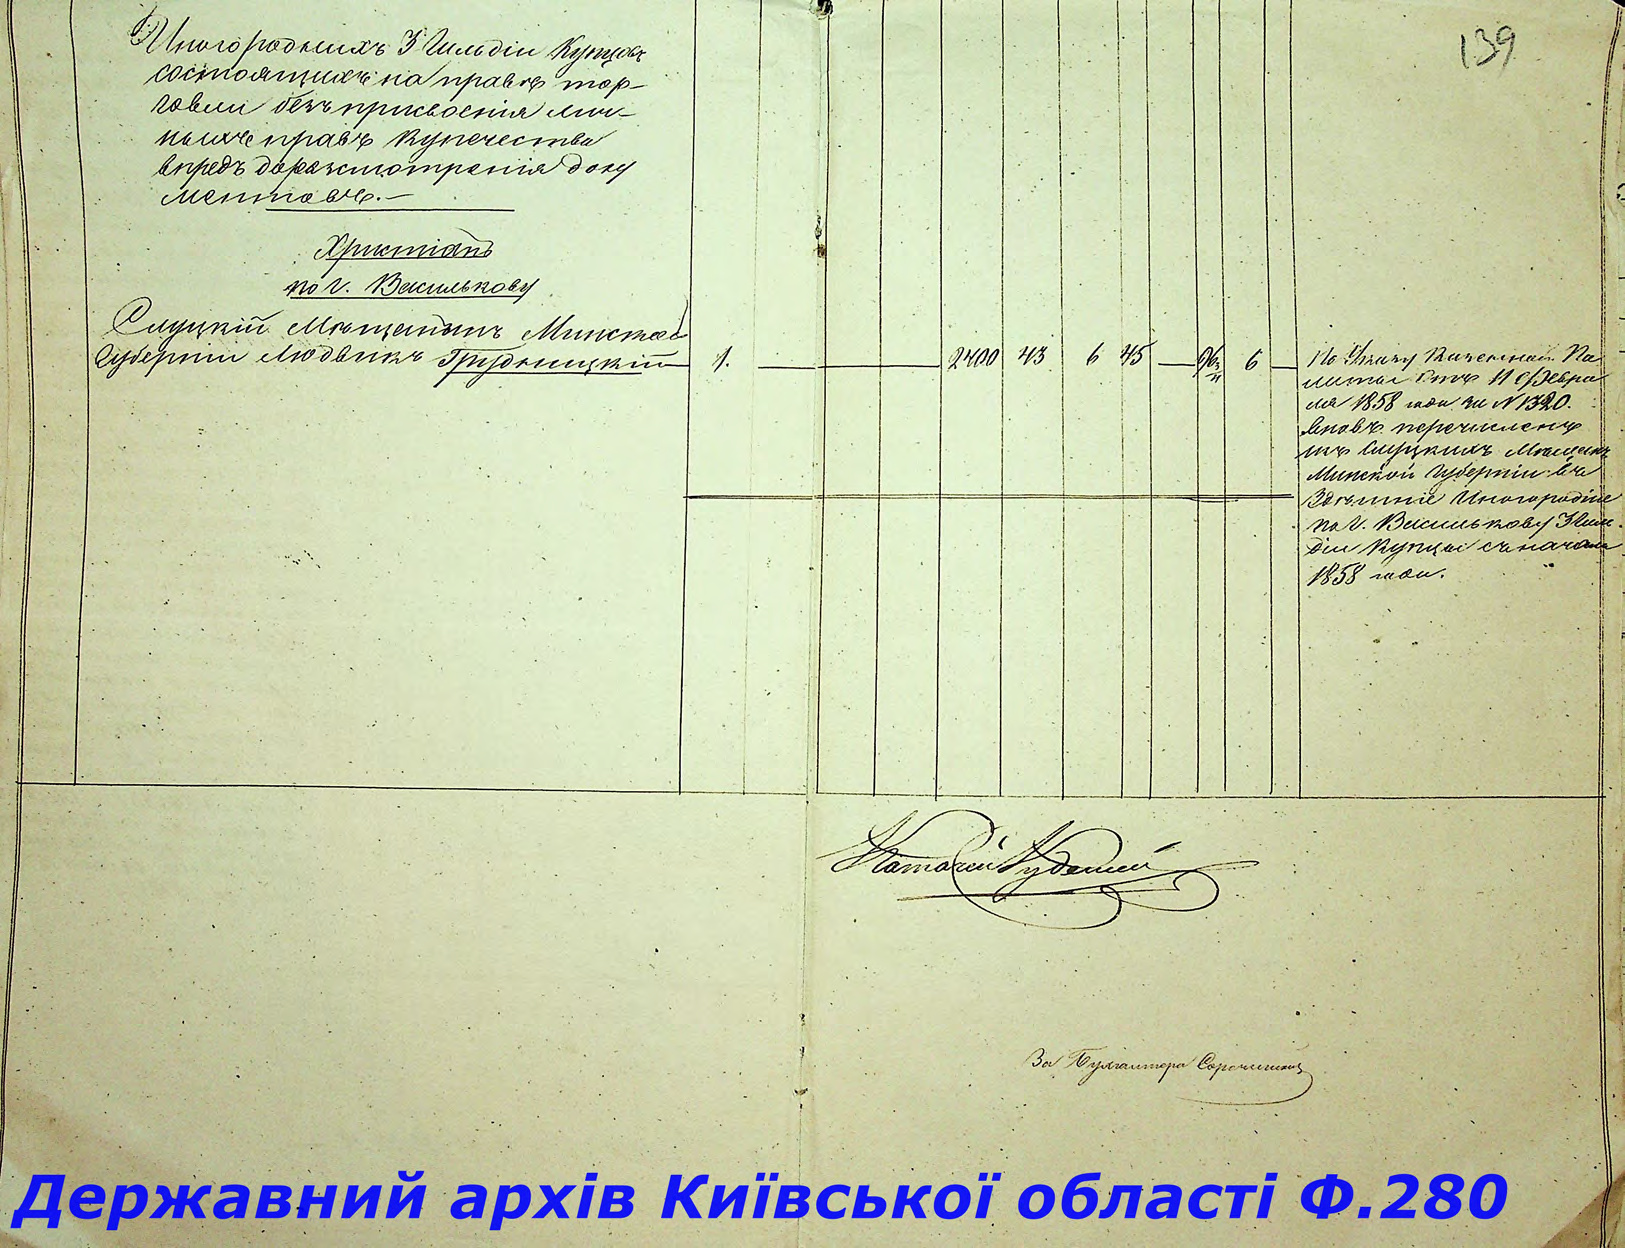 139
Иногородныхъ 3 Гильдіи Купцовъ
состоящихъ на правѣ тор-
говли безъ присвоенія лич-
ныхъ правъ Купечества
впредъ доразсмотренія доку
ментовъ.—
Христіанъ
по г. Василькову
Слуцкій Мѣщанинъ Минской
Губерніи Людвикъ Грудницкій
1. 2400 43 6 45 6
По Указу Казенной Па
латы отъ 11 Февра
ля 1858 года за N 1320.
вновь перечисленъ
изъ Слуцкихъ Мѣщанъ
Минской Губерніи въ
Здѣшніе Иногородніе
по г. Василькову 3 Гиль
діи Купцы съ начала
1858 года.
За Бухгалтера
Державний архів Київської області Ф.280